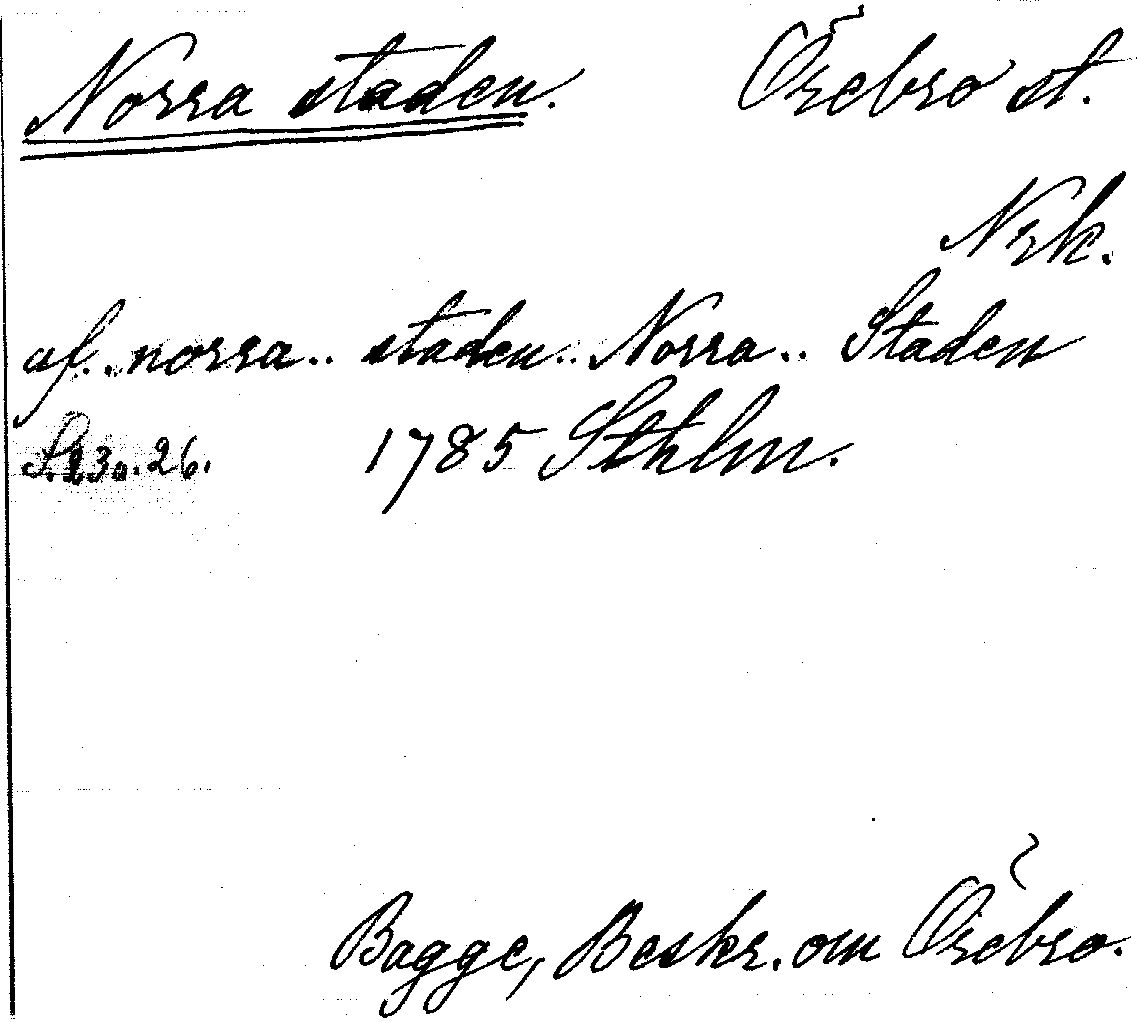 Norra staden. Örebro st.
Nrk.
af. norra.. staden.. Norra.. Staden
S. 230.26. 1785 Sthlm.
Bagge, Beskr. om Örebro.